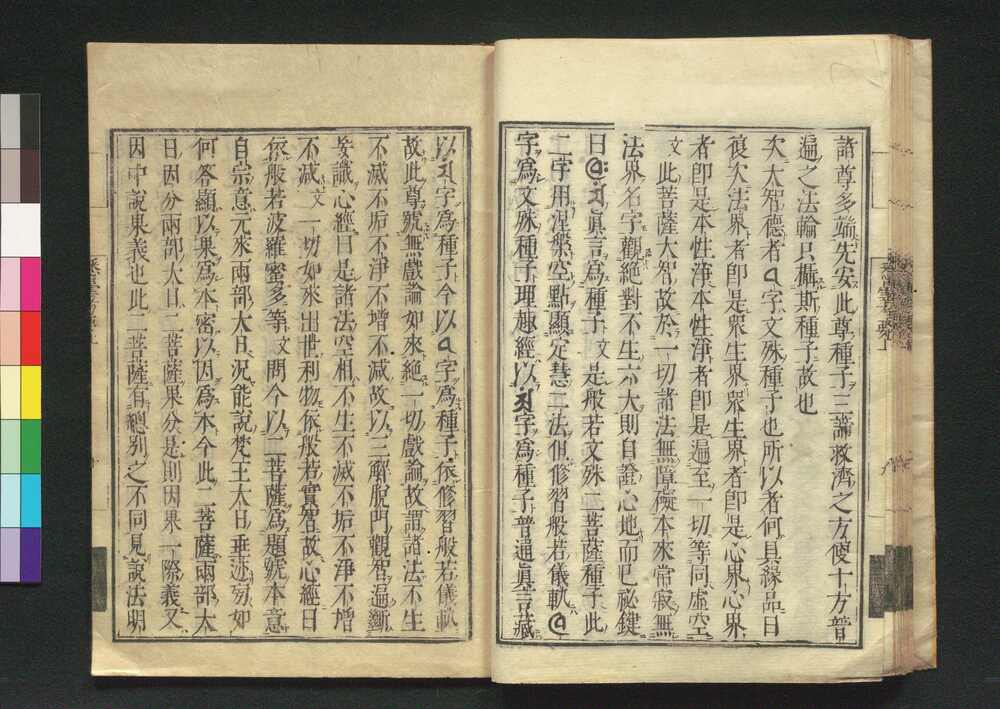 諸尊多端先安此尊種子三論救濟之方便十方普
遍之法輪只攝斯種子故也
次大智德者𑖀字文殊種子也所以者何具緣品曰
復次法界者即是眾生界眾生界者即是心界心界
者即是本性淨本性淨者即是遍至一切等同虛空
文此菩薩大智故於一切諸法無障礙本來常寂無
法界名字觀絕對不生六大則自證心地而已祕鍵
曰 眞言爲種子是般若文殊二菩薩種子此
二字用涅槃空點顯定慧二法俱修習般若儀軌
字爲文殊種子理趣經以字爲種子普通眞言藏
以字爲種子今以𑖀字爲種子依修習般若儀軌
故此尊號無戲論如來絕一切戲論故謂諸法不生
不滅不垢不淨不增不減故以三解脫門觀智遍斷
妄識心經曰是諸法空相不生不滅不垢不淨不增
不減文一切如來出世利物依般若實智故心經曰
依般若波羅蜜多等文問今以二菩薩爲題號本意
自宗意元來兩部大日況能說梵王大日垂迹勿如
何答顯以果爲本密以因爲本今此二菩薩兩部大
日因分兩部大日二菩薩果分是則因果一際義又
因中說果義也此二菩薩有總別之不同見說法明